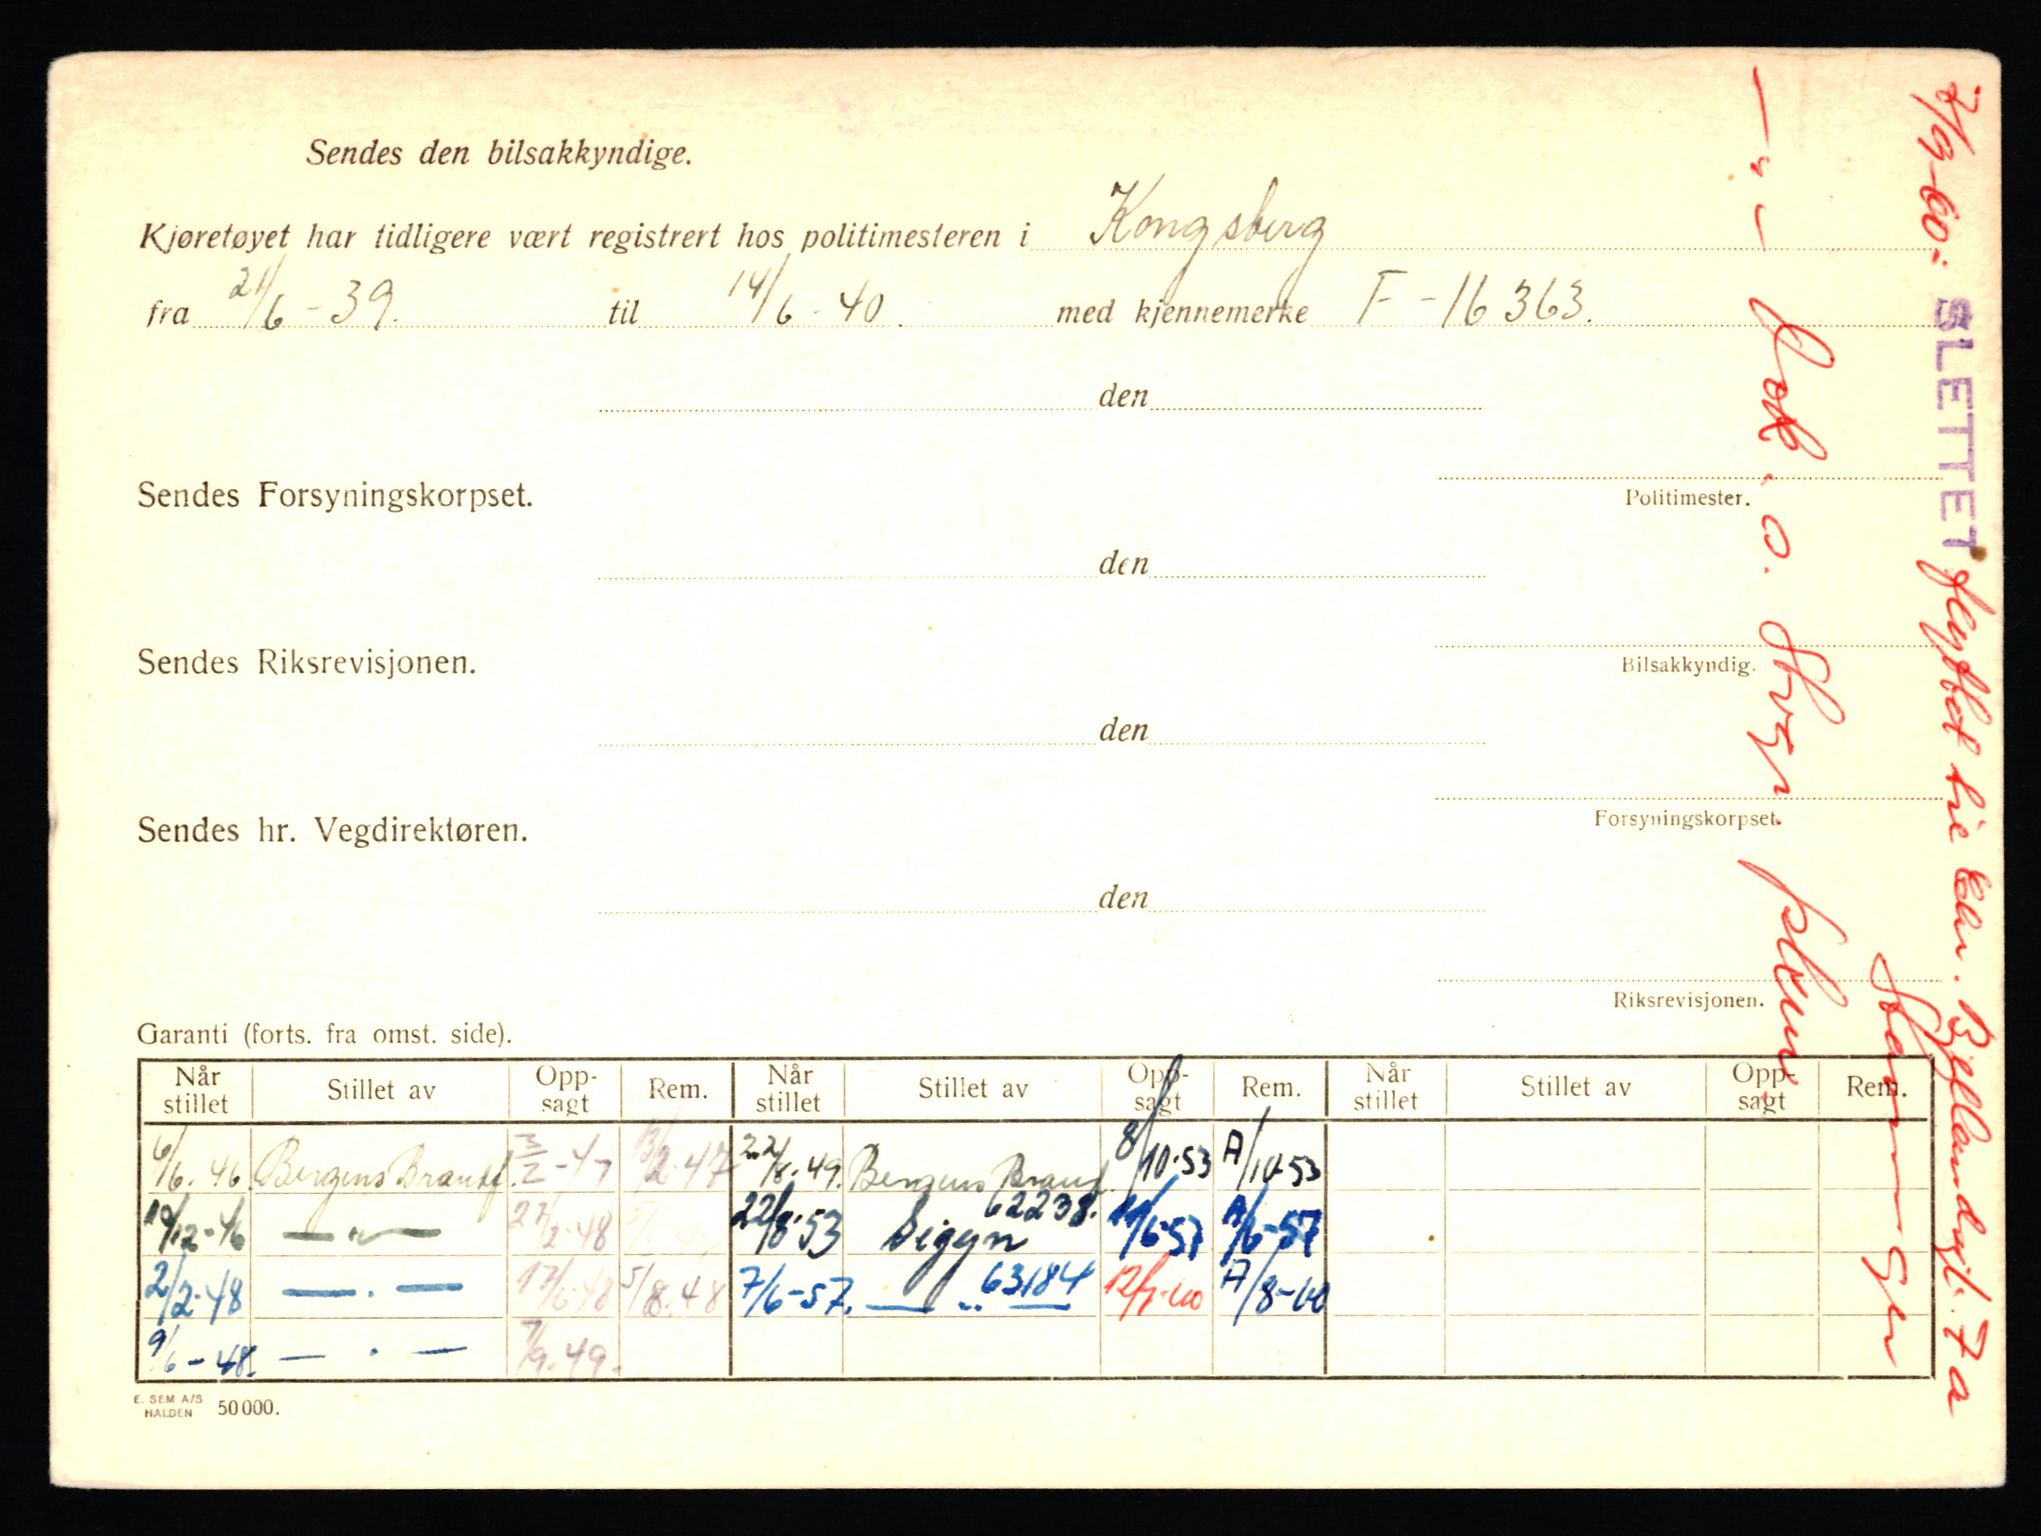 Sendes den bilsakkyndige.
Kjøretøyet har tidligere vært registrert hos politimesteren i Kongsberg
fra 21/6-39. til 14/6-40. med kjennemerke F-16363.
den
Politimester.
Sendes Forsyningskorpset.
den
Bilsakkyndig.
Sendes Riksrevisjonen.
den
Forsyningskorpset.
Sendes hr. Vegdirektøren.
den
Riksrevisjonen.
Garanti (forts. fra omst. side).
Når stillet Stillet av Opp-sagt Rem. Når stillet Stillet av Opp-sagt Rem. Når stillet Stillet av Opp-sagt Rem.
6/6.46 Bergens Brandf. 3/2-47 13/2-47 22/8.49. Bergens Branf. 8/10-53 A/10-53
19/12-46 — " — 27/2-48 22/8-53 Sigyn 62238. 11/6-57 A/6-57
2/2-48 — " — 17/6-48 5/8.48 7/6-57. — " — 63184 12/7-60 A/8-60
9/6-48. — " — 7/9.49.
E. SEM A/S
HALDEN 50000.
7/9-60: SLETTET flyttet til Bjellandsgt. 7a
Stavanger
— " —